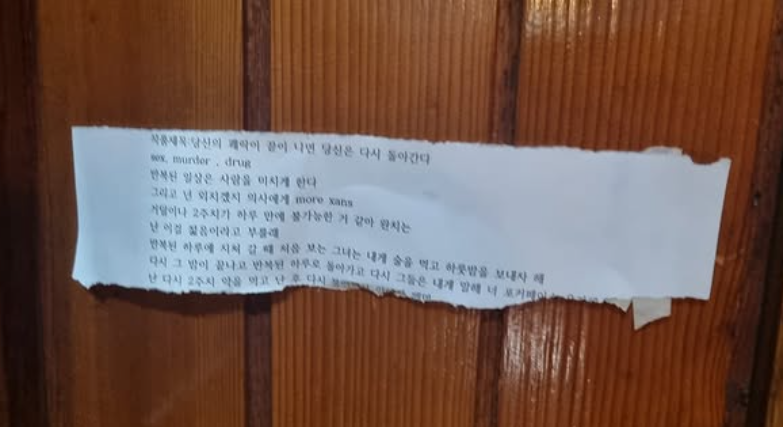 작품제목:당신의 쾌락이 끝이 나면 당신은 다시 돌아간다
sex, murder , drug
반복된 일상은 사람을 미치게 한다
그리고 넌 외치겠지 의사에게 more xans
한달이나 2주치가 하루 만에 불가능한 거 같아 완치는
난 이걸 젊음이라고 부를래
반복된 하루에 지쳐 갈 때 처음 보는 그녀는 내게 술을 먹고 하룻밤을 보내자 해
다시 그 밤이 끝나고 반복된 하루로 돌아가고 다시 그들은 내게 말해 너 포커페이스
난 다시 2주치 약을 먹고 난 후 다시